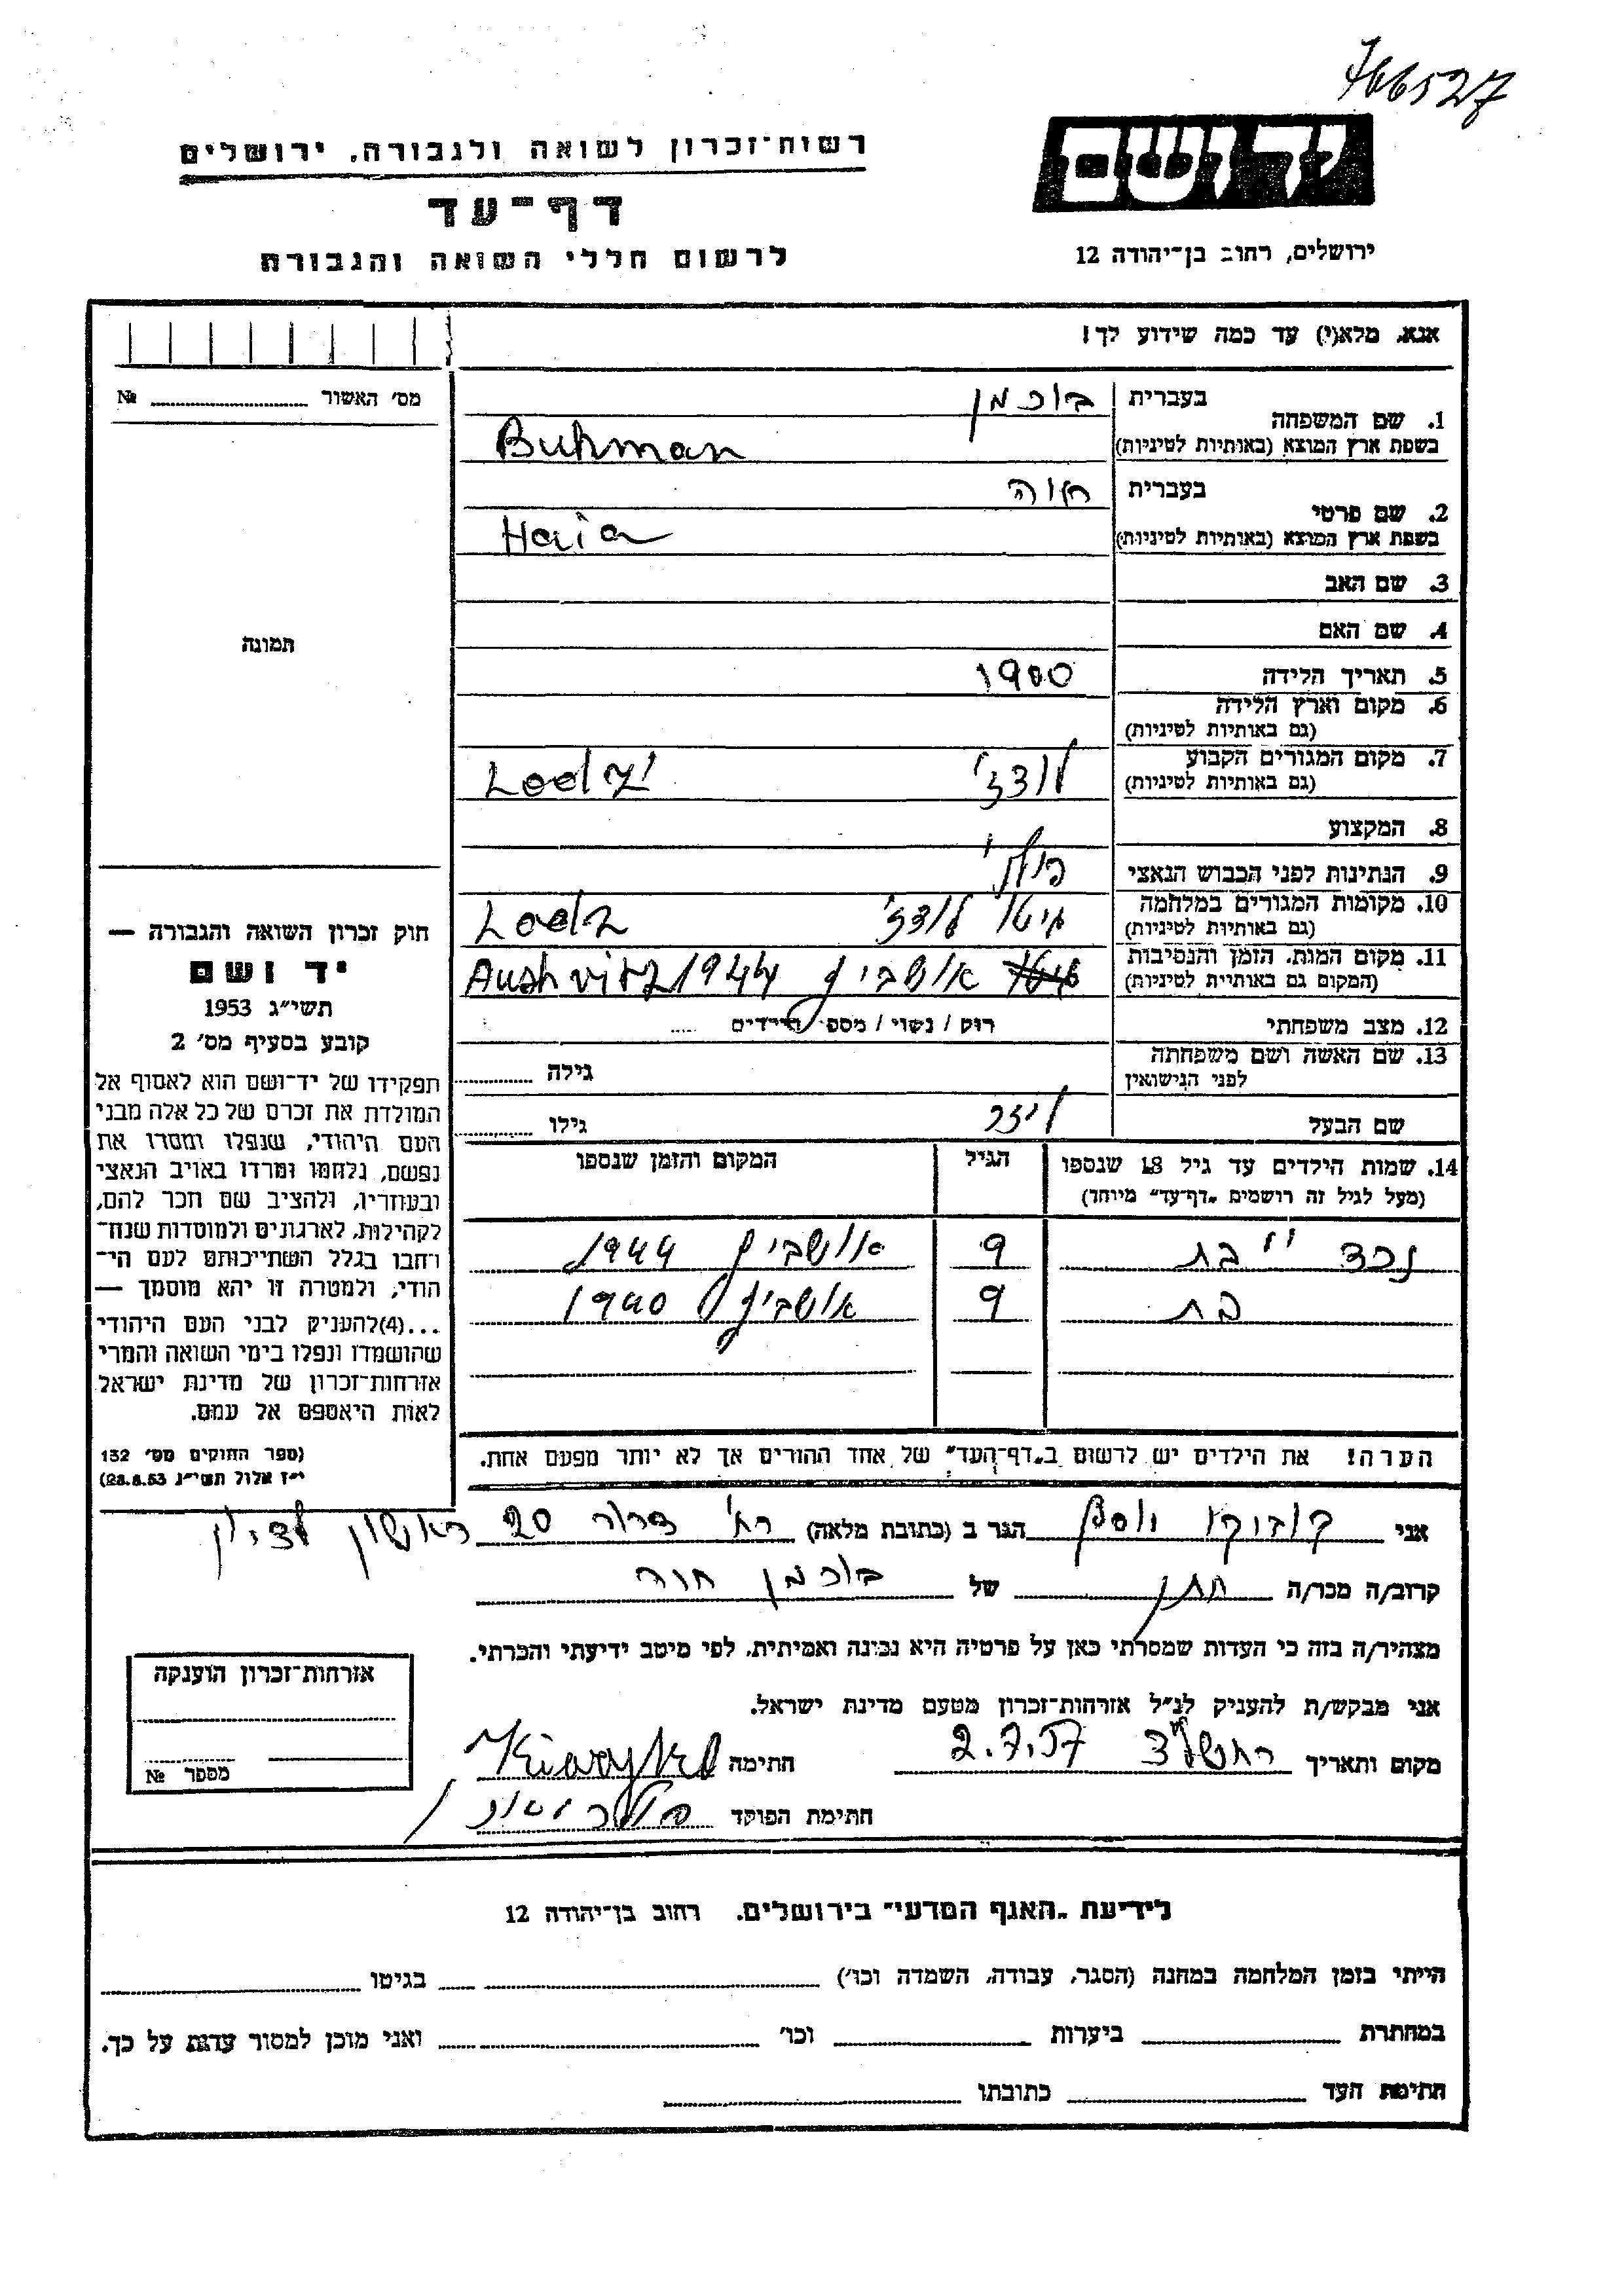 766527
יד ושם
רשות־זכרון לשואה ולגבורה, ירושלים
דף־עד
לרשום חללי השואה והגבורה
ירושלים, רחוב בן־יהודה 12
אנא, מלא(י) עד כמה שידוע לך!
מס׳ האשור № 
תמונה
1. שם המשפחה
בעברית בוכמן
בשפת ארץ המוצא (באותיות לטיניות) Buhman
2. שם פרטי
בעברית חוה
בשפת ארץ המוצא (באותיות לטיניות) Haia
3. שם האב
4. שם האם
5. תאריך הלידה 1900
6. מקום וארץ הלידה
(גם באותיות לטיניות)
7. מקום המגורים הקבוע לודז׳ Lodz
(גם באותיות לטיניות)
8. המקצוע
9. הנתינות לפני הכבוש הנאצי
10. מקומות המגורים במלחמה גיטו לודז׳ Lodz
(גם באותיות לטיניות)
11. מקום המות, הזמן והנסיבות אושביץ Aushvitz 1944
(המקום גם באותיות לטיניות)
12. מצב משפחתי רווק / נשוי / מספר הילדים
13. שם האשה ושם משפחתה גילה
לפני הנישואין
שם הבעל גילו
14. שמות הילדים עד גיל 18 שנספו הגיל המקום והזמן שנספו
(מעל לגיל זה רושמים „דף־עד” מיוחד)
נכד בת 9 אושביץ 1944
בת 9 אושביץ 1940
הערה! את הילדים יש לרשום ב„דף־העד” של אחד ההורים אך לא יותר מפעם אחת.
חוק זכרון השואה והגבורה —
יד ושם
תשי״ג 1953
קובע בסעיף מס׳ 2
תפקידו של יד־ושם הוא לאסוף אל
המולדת את זכרם של כל אלה מבני
העם היהודי, שנפלו ומסרו את
נפשם, נלחמו ומרדו באויב הנאצי
ובעוזריו, ולהציב שם וזכר להם,
לקהילות, לארגונים ולמוסדות שנח־
רבו בגלל השתייכותם לעם הי־
הודי, ולמטרה זו יהא מוסמך —
...(4) להעניק לבני העם היהודי
שהושמדו ונפלו בימי השואה והמרי
אזרחות־זכרון של מדינת ישראל
לאות היאספם אל עמם.
(ספר החוקים מס׳ 132
י״ז אלול תשי״ג 28.8.53)
אני יוסף הגר ב (כתובת מלאה) רח׳ 20 ראשון לציון
קרוב/ה מכר/ה חתן של בוכמן חוה
מצהיר/ה בזה כי העדות שמסרתי כאן על פרטיה היא נכונה ואמיתית, לפי מיטב ידיעתי והכרתי.
אני מבקש/ת להעניק לנ״ל אזרחות־זכרון מטעם מדינת ישראל.
מקום ותאריך ראשל״צ 2.7.57 חתימה
חתימת הפוקד
אזרחות־זכרון הוענקה
מספר №
לידיעת „האגף המדעי” בירושלים, רחוב בן־יהודה 12
הייתי בזמן המלחמה במחנה (הסגר, עבודה, השמדה וכו׳) בגיטו
במחתרת ביערות וכו׳ ואני מוכן למסור עדות על כך.
חתימת העד כתובתו